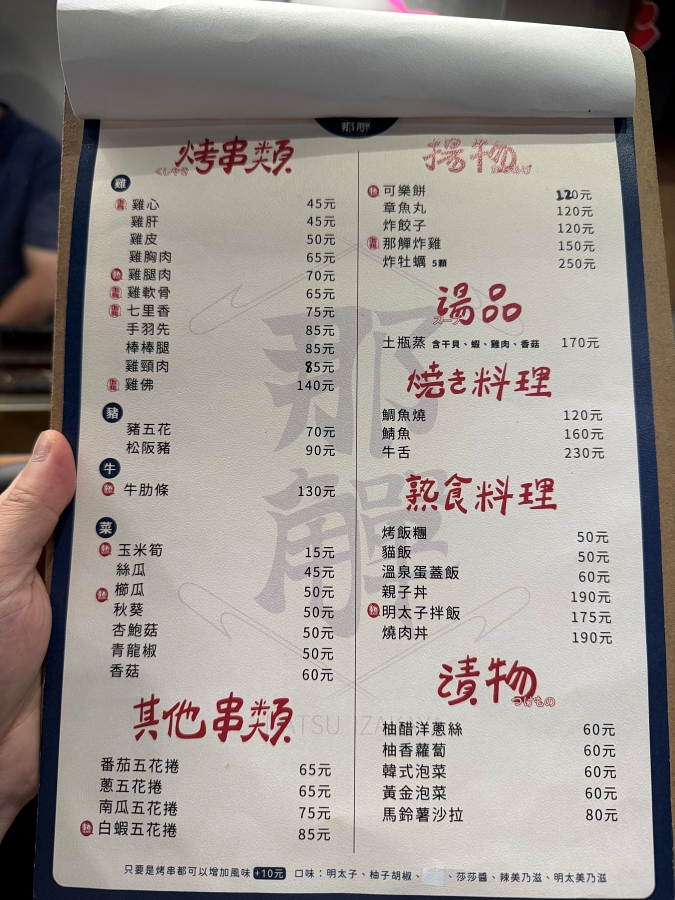 那觶
烤串類
くしやき
雞
雞心 45元
雞肝 45元
雞皮 50元
雞胸肉 65元
熱 雞腿肉 70元
雞軟骨 65元
七里香 75元
手羽先 85元
棒棒腿 85元
雞頸肉 85元
雞佛 140元
豬
豬五花 70元
松阪豬 90元
牛
熱 牛肋條 130元
菜
熱 玉米筍 15元
絲瓜 45元
熱 櫛瓜 50元
秋葵 50元
杏鮑菇 50元
青龍椒 50元
香菇 60元
其他串類
番茄五花捲 65元
蔥五花捲 65元
南瓜五花捲 75元
熱 白蝦五花捲 85元
揚物
熱 可樂餅 120元
章魚丸 120元
炸餃子 120元
那觶炸雞 150元
炸牡蠣 5顆 250元
湯品
スープ
土瓶蒸 含干貝、蝦、雞肉、香菇 170元
燒き料理
鯛魚燒 120元
鯖魚 160元
牛舌 230元
熟食料理
烤飯糰 50元
貓飯 50元
溫泉蛋蓋飯 60元
親子丼 190元
熱 明太子拌飯 175元
燒肉丼 190元
漬物
つけもの
柚醋洋蔥絲 60元
柚香蘿蔔 60元
韓式泡菜 60元
黃金泡菜 60元
馬鈴薯沙拉 80元
那觶
ATSU IZAKA
只要是烤串都可以增加風味 +10元 口味：明太子、柚子胡椒、 、莎莎醬、辣美乃滋、明太美乃滋